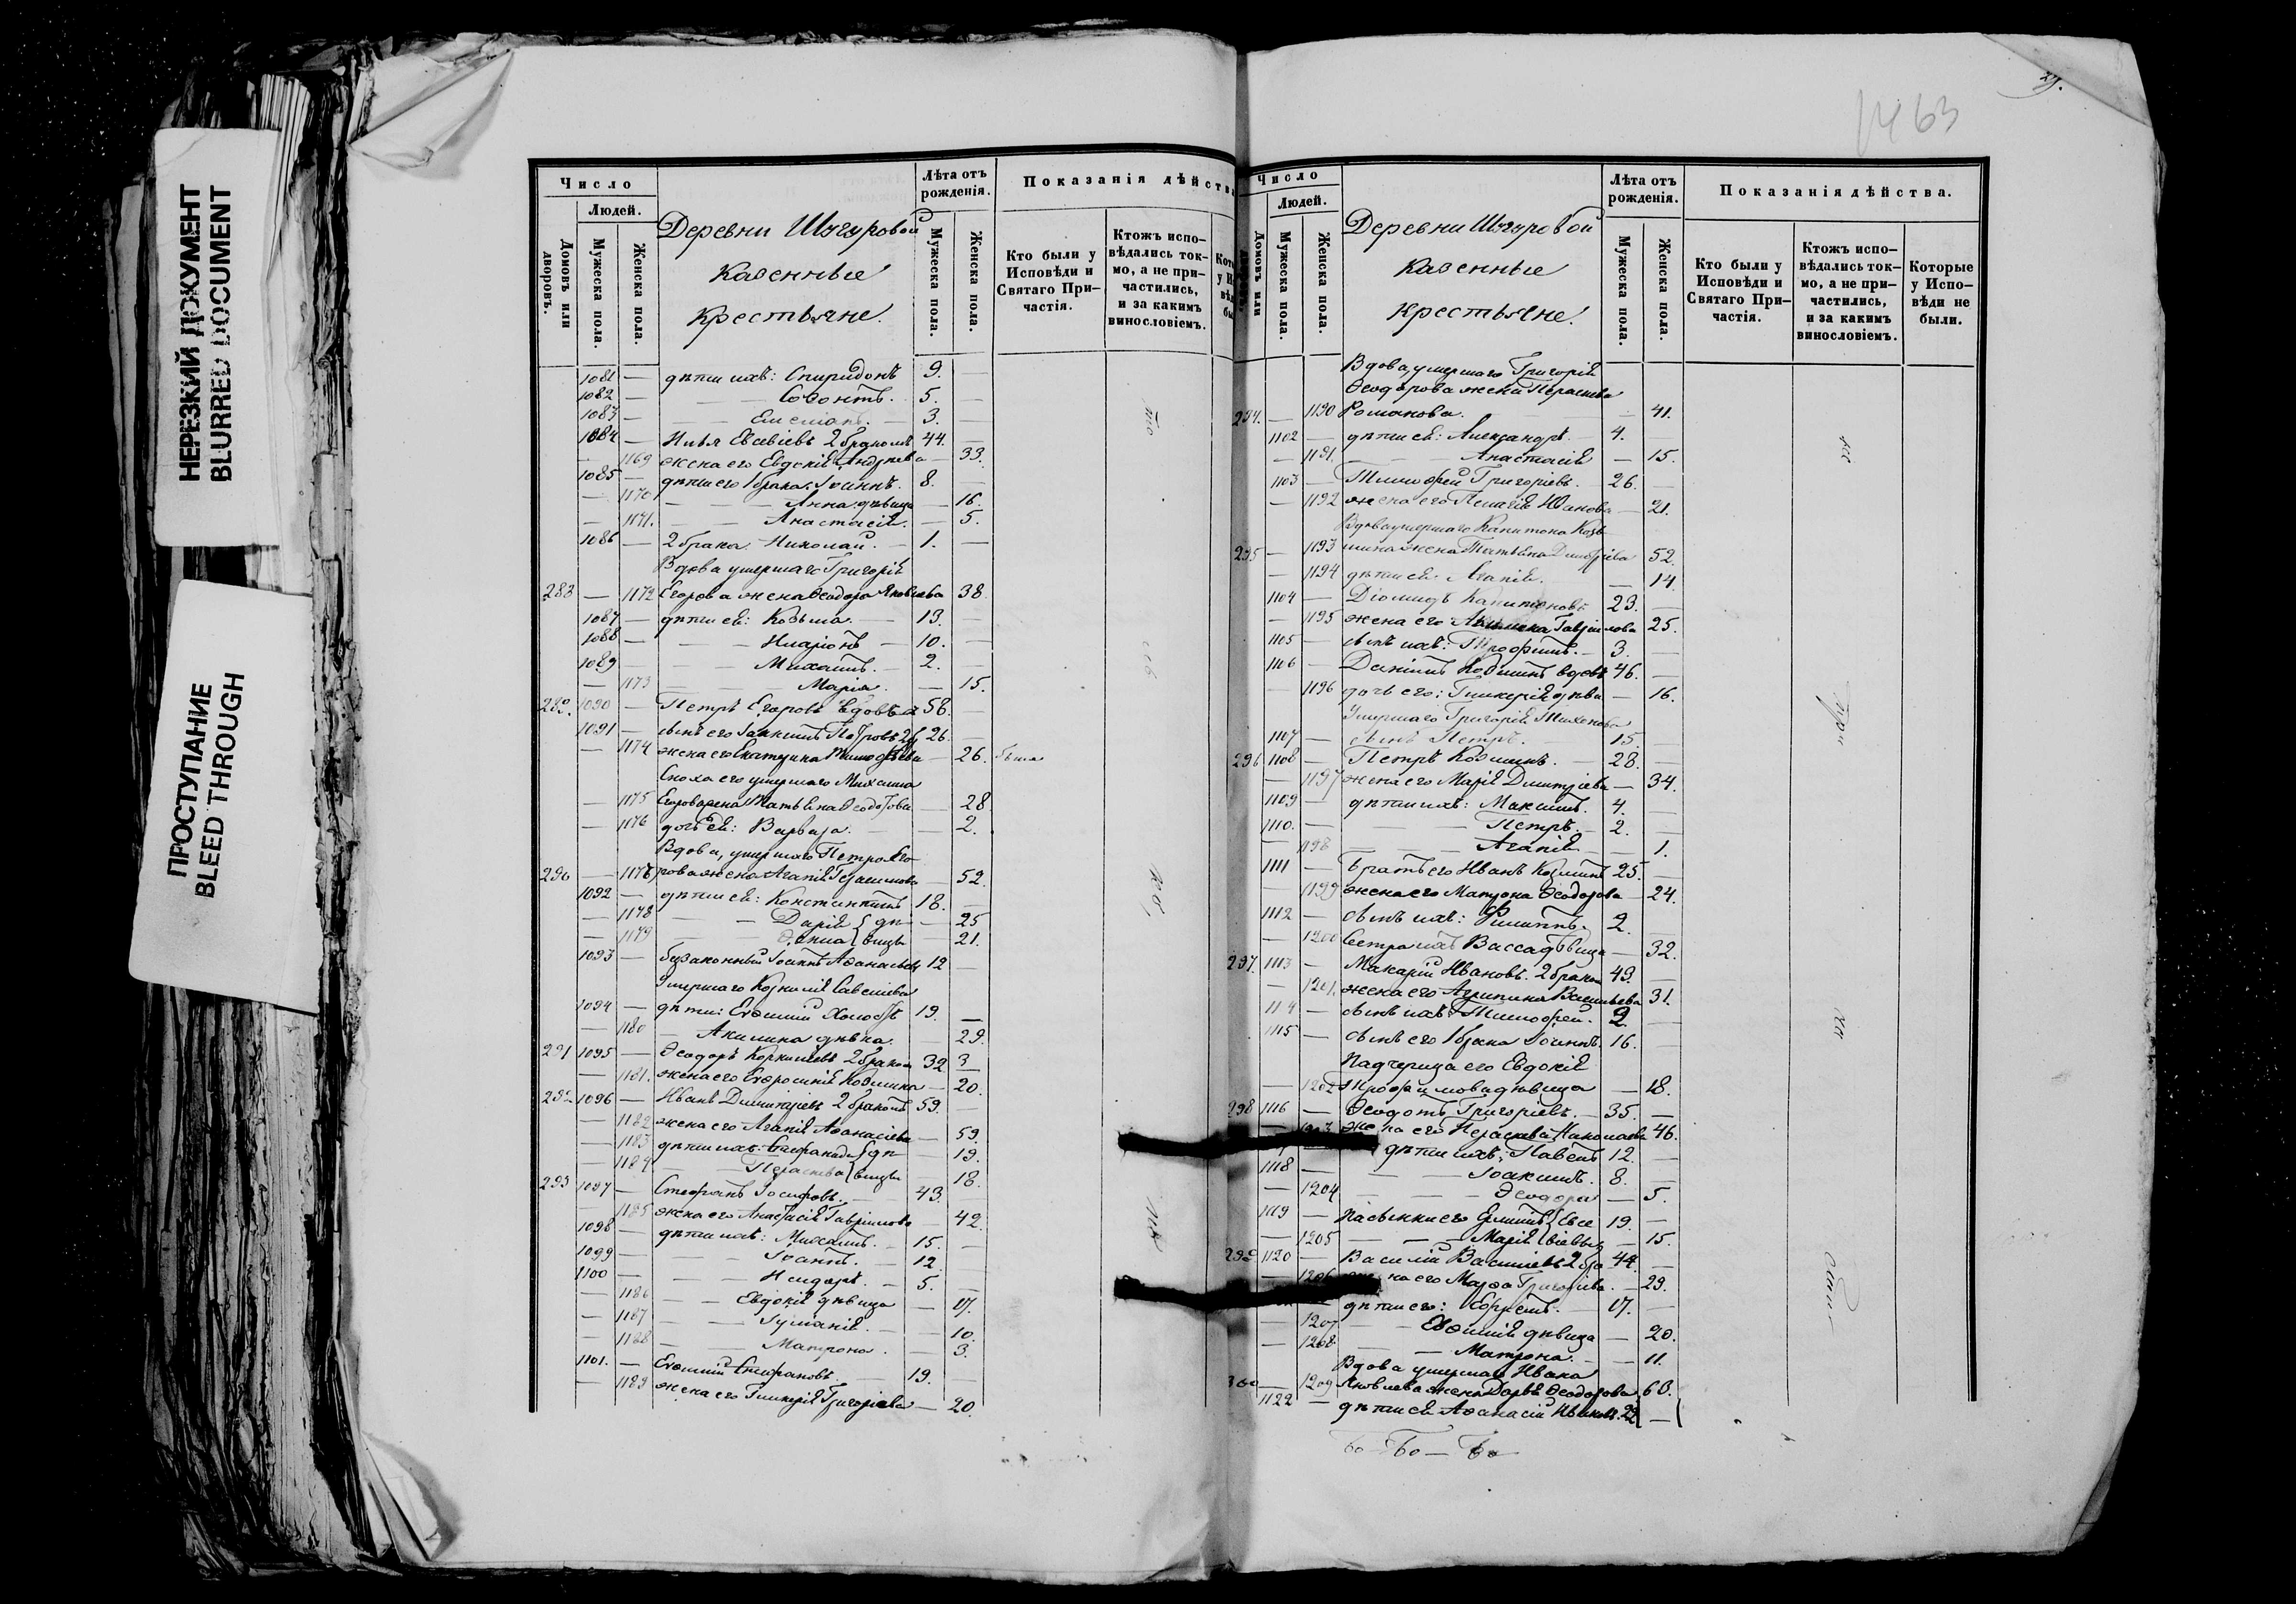 НЕРЕЗКИЙ ДОКУМЕНТ
BLURRED DOCUMENT
ПРОСТУПАНИЕ
BLEED THROUGH
Число
Людей.
Домовъ или дворовъ.
Мужеска пола.
Женска пола.
Деревни Шугуровой
Казенные
Крестьяне.
Лѣта отъ рожденія.
Мужеска пола.
Женска пола.
Показанія дѣйств
Кто были у Исповѣди и Святаго Причастія.
Ктожъ исповѣдались токмо, а не причастились, и за какимъ винословіемъ.
1081 — дѣти ихъ: Спиридонъ 9. —
1082 — — — 5. —
1083 — — — 3. —
1084 — Илья Евсевіевъ 2 бракомъ 44. —
— 1169 жена его Евдокія Андреева — 33.
1085 — дѣти его 1 брака: Іоаннъ. 8. —
— 1170 — — Анна дѣвица — 16.
— 1171. — — Анастасія. — 5.
1086 — 2 брака Николай. — 1. —
Вдова умершаго Григорія
288 — 1172 Егорова жена Ѳеодора Яковлева 38.
1087 — дѣти ея: Козьма. — 13. —
1088 — — — Иларіонъ — 10. —
1089 — — — Михаилъ. — 2. —
— 1173 — — Марія. — 15.
289. 1090 — Петръ Егоровъ вдовъ 58. —
1091 — сынъ его Іоакимъ Петровъ 26. —
— 1174 жена его Екатерина Тимофѣева — 26.
Сноха его умершаго Михаила
— 1175 Егорова жена Татьяна Ѳеодотова — 28
— 1176 дочь ея: Варвара. — — 2.
Вдова, умершаго Петра Его-
290 — 1177 рова жена Агапія Герасимова — 52.
1092 — дѣти ея: Константинъ 18. —
— 1178 — — Дарія } дѣ — 25
— 1179 — — } вицы — 21.
1093 — беззаконный Іоаннъ Аѳанасьевъ 12 —
Умершаго Корнилія Савельева
1094 — дѣти: Евѳимій Холостъ 19. —
— 1180 — Акилина дѣвка. — 29.
291 1095 — Ѳеодоръ Корниліевъ 2 бракомъ 32 3
— 1181. жена его Евфросинія Козмина — 20.
292 1096 — Иванъ Димитріевъ 2 бракомъ 59. —
— 1182 жена его Агапія Аѳанасіева — 59.
— 1183 дѣти ихъ: Стефанида } дѣ — 19.
— 1184 — — Параскева } вицы — 18.
293 1097 — Стефанъ Іосифовъ. — 43. —
— 1185 жена его Анастасія Гавріилова — 42.
1098 — дѣти ихъ: Михаилъ. — 15. —
1099 — — — Іоаннъ. — 12. —
1100 — — — Исидоръ. — 5. —
— 1186 — — Евдокія дѣвица — 17.
— 1187 — — Іуліанія. — 10.
— 1188 — — Матрона. — 3.
1101. — Евѳимій Стефановъ. 19. —
— 1189 жена его Гликерія Григоріева — 20.
1463
Число
Людей.
Домовъ или дворовъ.
Мужеска пола.
Женска пола.
Деревни Шугуровой
Казенные
Крестьяне.
Лѣта отъ рожденія.
Мужеска пола.
Женска пола.
Показанія дѣйства.
Кто были у Исповѣди и Святаго Причастія.
Ктожъ исповѣдались токмо, а не причастились, и за какимъ винословіемъ.
Которые у Исповѣди не были.
Вдова, умершаго Григорія
Ѳеодорова жена Параскева
294. — 1190 Романова. — — 41.
1102 — дѣти ея: Александръ. 4. —
— 1191. — — Анастасія — 15.
1103 — Тимофей Григоріевъ. 26. —
— 1192 жена его Пелагія Иванова — 21.
Вдова умершаго Капитона Козь-
295 — 1193 мина жена Татьяна Димитріева 52.
— 1194 дѣти ея: Агапія. — 14.
1104 — Діомидъ Капитоновъ 23. —
— 1195 жена его Гавріилова 25.
1105 — сынъ ихъ: Трофимъ. — 3. —
1106 — Даніилъ Козминъ вдовъ 46. —
— 1196 дочь его: Гликерія дѣвица — 16.
Умершаго Григорія
1107 — сынъ Петръ. — 15. —
296 1108 — Петръ Козминъ. — 28. —
— 1197 жена его Марія Димитріева — 34.
1109 — дѣти ихъ: Максимъ. 4. —
1110. — — — Петръ. — 2. —
— 1198 — — Агапія — 1.
1111 — Братъ его Иванъ Козминъ 25. —
— 1199 жена его Матрона Ѳеодорова — 24.
1112 — сынъ ихъ: Филиппъ. 2. —
— 1200 Сестра ихъ Васса дѣвица — 32.
297. 1113 — Макарій Ивановъ. 2 бракомъ 49. —
— 1201. жена его Агрипина Васильева 31.
1114 — сынъ ихъ: Тимофей. 2. —
1115 — сынъ его 1 брака Іоаннъ. 16. —
Падчерица его Евдокія
— 1202 Трофимова дѣвица — 18.
298 1116 — Ѳеодотъ Григоріевъ. — 35. —
жена его Параскева Николаева 46.
дѣти ихъ: Павелъ 12. —
1118 — — — Іоакимъ. 8. —
— 1204 — — Ѳеодора — 5.
1119 — Пасынки его } Евсе 19. —
— 1205 — — Марія } віевы — 15.
299 1120 — Василій Васильевъ 2 бра 44. —
— 1206 жена его Марѳа Григоріева. — 29.
дѣти его: — 17. —
— 1207 — Евѳимія дѣвица — 20.
— 1208 — Матрона. — 11.
Вдова умершаго Ивана
300 — 1209 Яковлева жена Дарья Ѳеодорова 60.
1122 — дѣти ея Аѳанасій Ивановъ 22 —